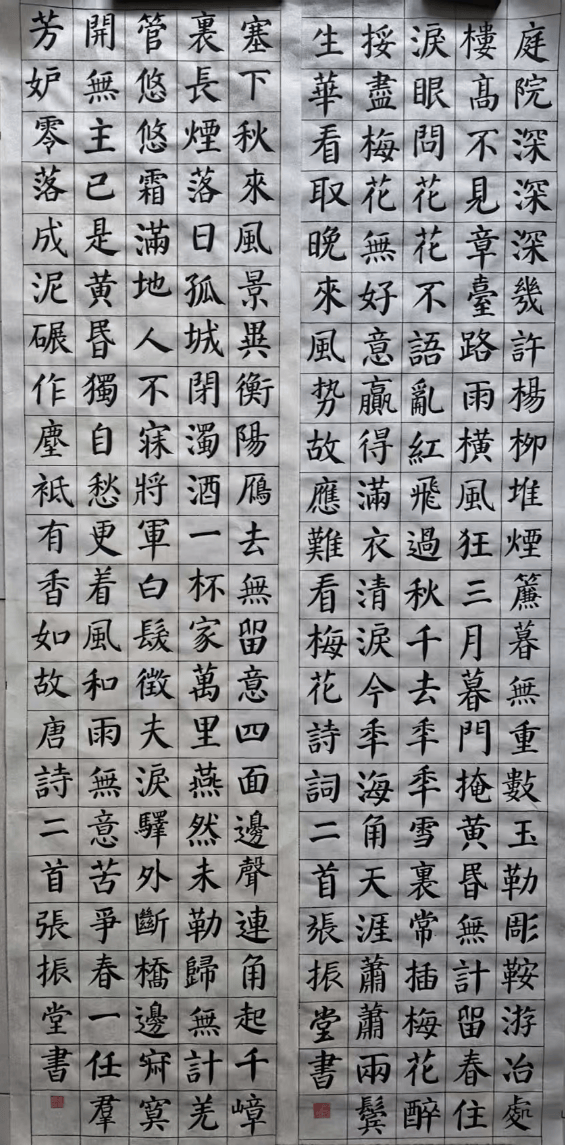 庭院深深深幾許楊柳堆煙簾暮無重數玉勒彫鞍游冶處
樓髙不見章臺路雨橫風狂三月暮門掩黄昬無計留春住
淚眼問花花不語亂紅飛過秋千去秊秊雪裏常插梅花醉
挼盡梅花無好意贏得滿衣清淚今秊海角天涯蕭蕭兩鬢
生華看取晚來風势故應難看梅花詩詞二首張振堂書
塞下秋來風景異衡陽鴈去無留意四面邊聲連角起千嶂
裏長煙落日孤城閉濁酒一杯家萬里燕然未勒歸無計羌
管悠悠霜滿地人不寐將軍白髮徵夫淚驛外斷橋邊寂寞
開無主已是黄昬獨自愁更着風和雨無意苦爭春一任羣
芳妒零落成泥碾作塵衹有香如故唐詩二首張振堂書